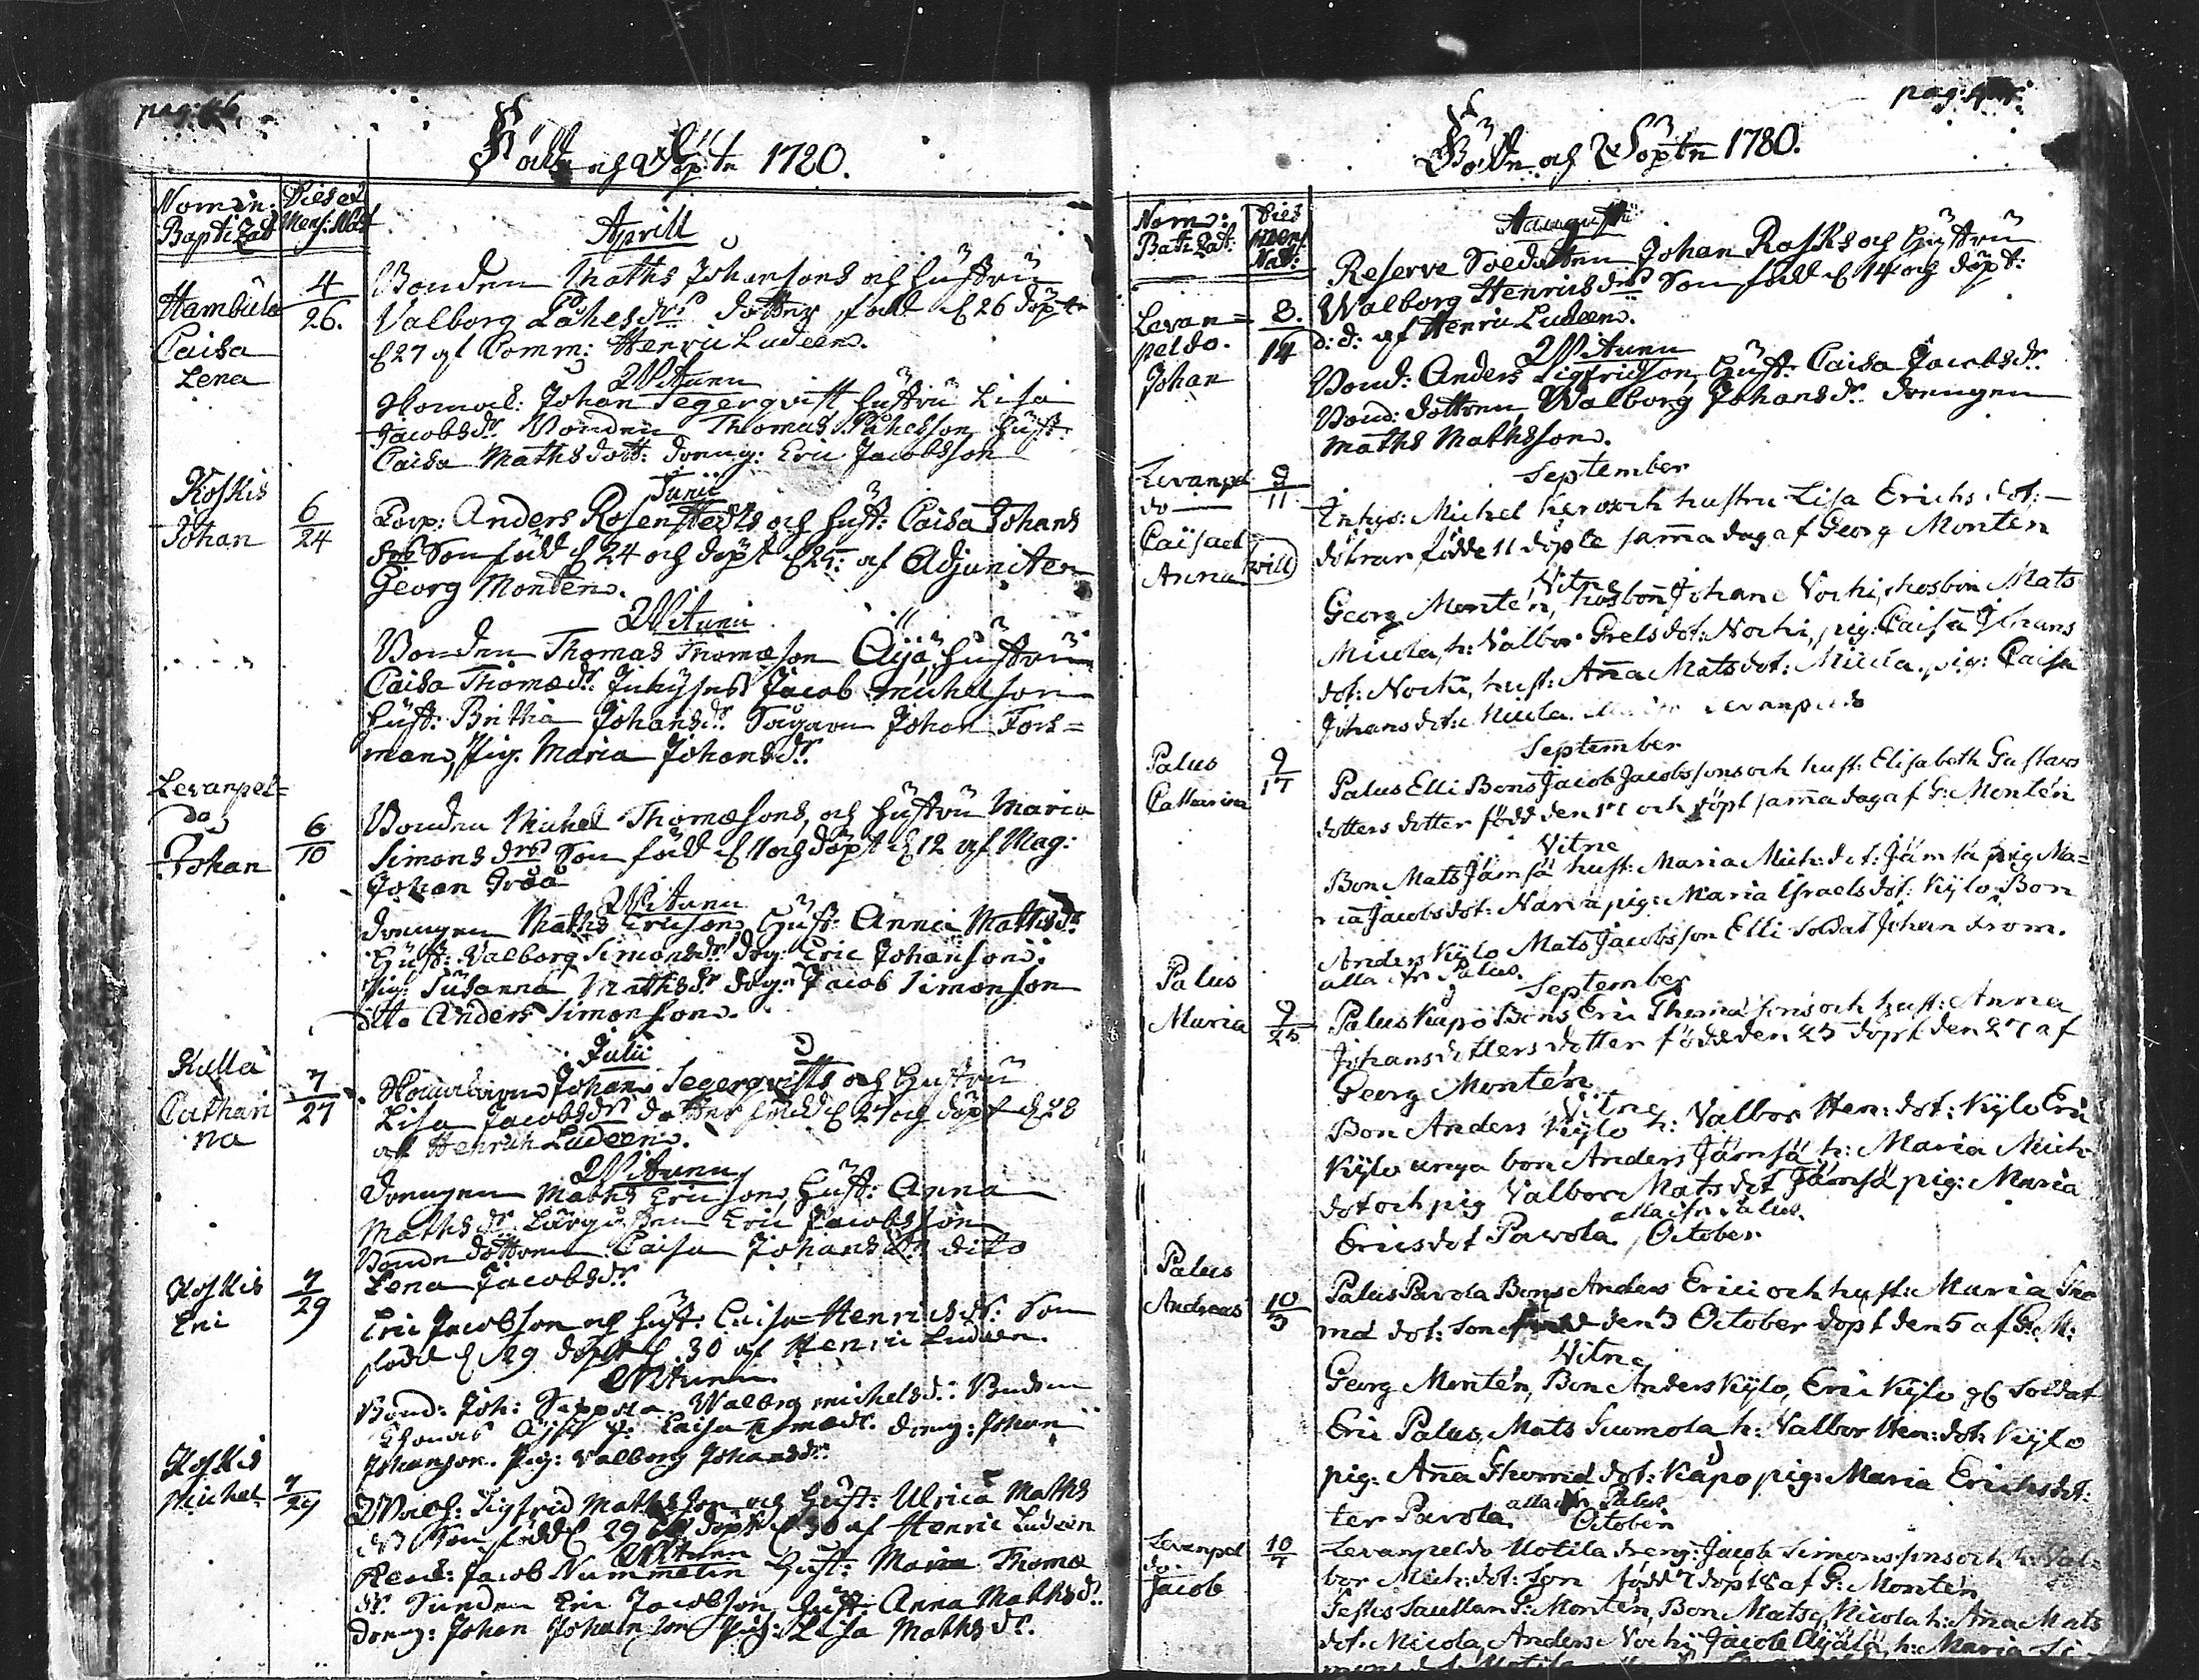 pag: 46
Födde och Döpte 1780.
Nomin: Dies et
Baptizat Mens: Nat
Aprill
Hambula 4/26.
Caisa
Lena
Bonden Maths Johansons och hustru
Valborg Påhlsdrs dotter född d 26 döpt
d 27 af Comm: Henric Ludeen.
Witnen
Johan Segerqvist hustru Lisa
Jacobsdr. Bonden Thomas Påhlsson hust:
Caisa Mathsdott: dreng: Eric Jacobsson
Junii
Koskis
Johan 6/24
Corp: Anders Rosenstedts och hust: Caisa Johans
drs Son född d 24 och döpt d 25: af Adjuncten
Georg Monteen.
Witnen
Bonden Thomas Thomæson Äijä, hustrun
Caisa Thomædr. Jacob Michelson
hust: Britha Johansdr. Johan Fors=
man, Pig. Maria Johansdr.
Levanpel=
do
Johan 6/10
Bonden Michel Thomæsons, och hustru Maria
Simonsdrs Son född d 11 och döpt d 12 af Mag:
Johan Gråå
Witnen
Drengen Maths Ericson, Hust: Anna Mathsdr.
Hust: Valborg Simonsdr. dreg: Eric Johanson.
Pig: Susanna Mathsdr. dreg: Jacob Simonson
dito Anders Simonson.
Julii
Kulla
Cathari
na 7/27
Johan Segerqvists och Hustru
Lisa Jacobsdrs dotter född d 27 och döpt d 28
af Henrich Ludeen.
Witnen
Drengen Maths Ericson, Hust: Anna
Mathsdr. Eric Jacobsson
Bonde dottren Caisa Johansdr. dito
Lena Jacobsdr.
Koskis
Eric 7/29
Eric Jacobson och hust: Caisa Henricsdrs: Son
född d 29 döpt d 30 af Henric Ludeen.
Witnen
Bond: Joh: Seppälä Walborg Michelsd: Bonden
Thomas Äijä h: Caisa Thomædr. dreng: Johan
Johanson. Pig: Valborg Johansdr.
Koskis
Michel 7/29
Sigfrid Mathsson och Hust: Ulrica Maths
drs Son född d 29 döpt d 30 af Henric Ludeen
Witnen
Jacob Nummelin Hust: Maria Thomæ
dr. Eric Jacobson hust: Anna Mathsdr.
dreng: Johan Johanson Pig: Lisa Mathsdr.
pag: 47
Födde och Döpte 1780.
Nom: Dies
Batizat: Mens
Nat:
Augusti
Levan=
peldo.
Johan 8/14
Reserve Soldaten Johan Rasks och Hustru
Walborg Henricsdrs Son född d 14 och döpt:
d: d: af Henric Ludeen.
Witnen
Bond: Anders Sigfridson, Hust: Caisa Jacobsdr.
Bond: dottren Walborg Johansdr. drengen
Maths Mathsson.
September
Levanpel
do 9/11
Caisa et
Anna twill
Inhys: Michel Kerox och hustru Lisa Erichs dot:
dötrar födde 11 döpte samma dag af Georg Montén
Vitne
Georg Montén, hosbon Johan Nochi, hosbon Mats
Micola, h: Valbor Grelsdot: Nochi, pig: Caisa Johans
dot: Nochi, hust: Anna Matsdot: Micola. pig: Caisa
Johans dot: Micola. Levanpeldo
September
Palus
Catharina 9/17
Palus Elli Bons Jacob Jacobssons och hust: Elisabeth Gustavs
dotters dotter född den 17 och döpt samma dag af G: Montén
Vitne
Bon Mats Jämsä hust: Maria Mich: dot: Jämsä pig Ma=
ria Jacobsdot: Naria pig: Maria Israelsdot: Kylo Bon
Anders Kylo Mats Jacobsson Elli Soldat Johan From.
alla ifr. Palus.
September
Palus
Maria 9/25
Palus Kapo Bons Eric Thomæsons och hust: Anna
Johansdotters dotter född den 25 döpt den 27 af
Georg Montén
Vitne
Bon Anders Kylo h: Valbor Hen: dot: Kylo Eric
Kylo unga bon Anders Jämsä h: Maria Mich
dot och pig Valbor Mats dot Jämsä pig: Maria
Ericsdot Pavola alla ifr Palus.
October
Palus
Andreas 10/3
Palus Pavola Bons Anders Erici och hust: Maria Tho
mæ dot: son född den 3 October döpt den 5 af G: M:
Vitne
Georg Montén, Bon Anders Kylo, Eric Kylo och Soldat
Eric Palus, Mats Suomola h: Valbor Hen: dot: Kylo
pig: Anna Thomæ dot: Kapo pig: Maria Erichsdot:
ter Pavola alla ifr Palus
October
Levanpel
do
Jacob 10/7
Levanpeldo Uotila dreng: Jacob Simonssons och h: Val=
bor Mich: dot: son född 7 döpt 8 af G: Montén
G: Montén, Bon Mats Nicola h: Anna Mats
dot: Nicola, Anders Nochi Jacob Äijälä, h: Maria Si=